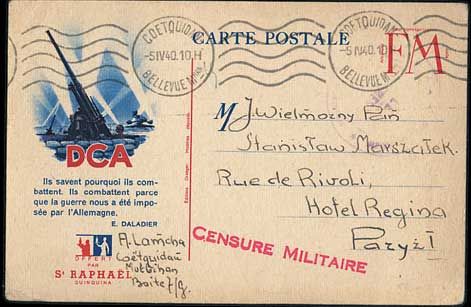 COËTQUIDAN
-5 IV 40. 10 H
BELLEVUE Mian
CARTE POSTALE
COËTQUIDAN
-5 IV 40. 10 H
BELLEVUE M
FM
DCA
Ils savent pourquoi ils com-
battent. Ils combattent parce
que la guerre nous a été impo-
sée par l'Allemagne.
E. DALADIER
OFFERT
PAR
St RAPHAËL
QUINQUINA
A. Lamcha
Coëtquidan
Morbihan
Boite 7/g.
M JWielmożny Pan
Stanisław Marszałek
Rue de Rivoli,
Hotel Regina
Paryż I
CENSURE MILITAIRE